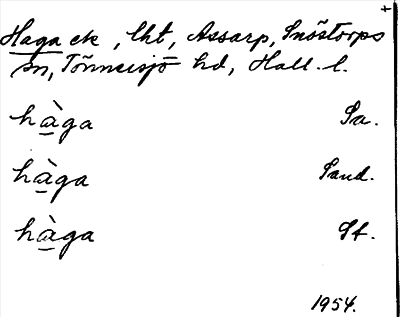 +
Haga ck, lht, Assarp, Snöstorps
sn, Tönnersjö hd, Hall. l.
hàga Sa.
hàga Sand.
hàga St.
1954.